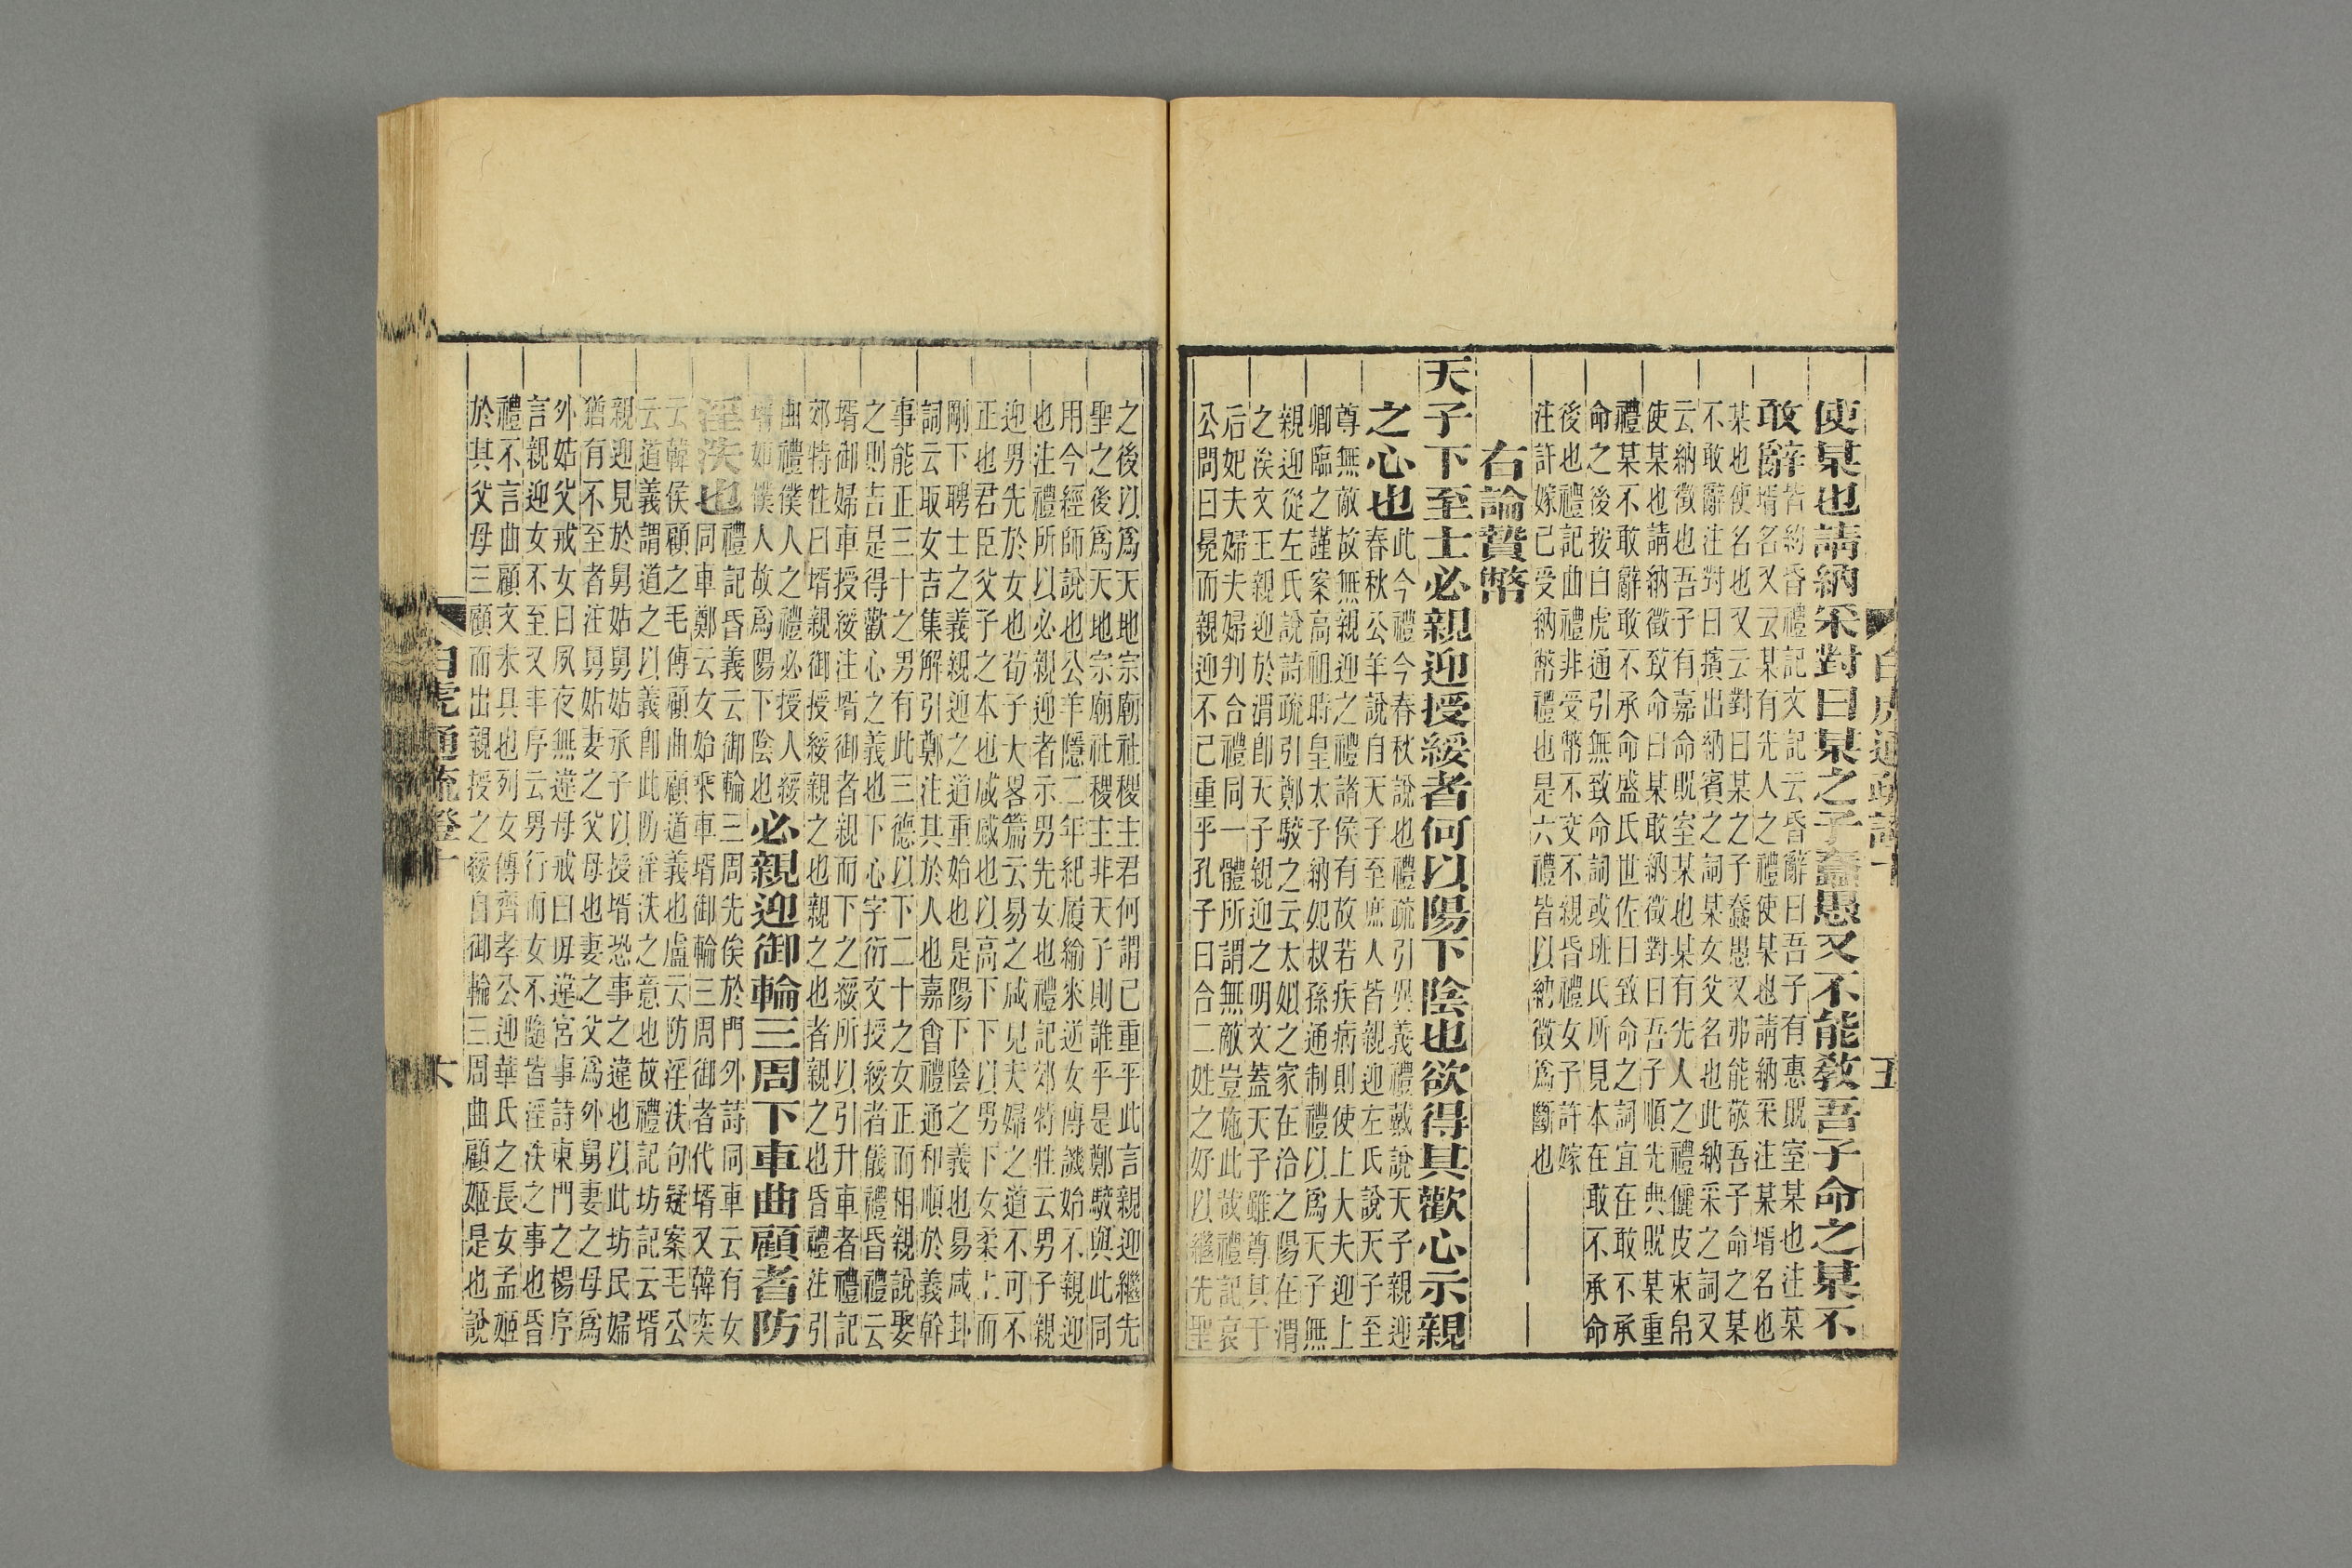 白虎通疏證十
五
使某也請納采對曰某之子蠢愚又不能敎吾子命之某不
敢辭皆納昏禮記文記云昏辭曰吾子有惠貺室某也注某
壻名又云某有先人之禮使某也請納采注某壻名也
某也使名也又云對曰某之子蠢愚又弗能敎吾子命之某
不敢辭注對曰擯出納賓之詞某女父名也此納采之詞又
云納徵也吾子有嘉命貺室某也某有先人之禮儷皮束帛
使某也請納徵致命曰某敢納徵對曰吾子順先典貺某重
禮某不敢辭敢不承命盛氏世佐曰致命之詞宜在敢不承
命之後按白虎通引無致命詞或班氏所見本在敢不承命
後也禮記曲禮非受幣不交不親昏禮女子許嫁
注許嫁已受納幣禮也是六禮皆以納徵爲斷也
右論贄幣
天子下至士必親迎授綏者何以陽下陰也欲得其歡心示親
之心也此今禮今春秋說也禮疏引異義禮戴說天子親迎
春秋公羊說自天子至庶人皆親迎左氏說天子至
尊無敵故無親迎之禮諸侯有故若疾病則使上大夫迎上
卿臨之謹案高祖時皇太子納妃叔孫通制禮以爲天子無
親迎從左氏說詩疏引鄭駮之云太姒之家在洽之陽在渭
之涘文王親迎於渭卽天子親迎之明文蓋天子雖尊其于
后妃夫婦夫婦判合禮同一體所謂無敵豈施此故禮記哀
公問曰冕而親迎不已重乎孔子曰合二姓之好以繼先聖
之後以爲天地宗廟社稷主君何謂已重乎此言親迎繼先
聖之後爲天地宗廟社稷主非天子則誰乎是鄭駮與此同
用今經師說也公羊隱二年紀履緰來逆女傳譏始不親迎
也注禮所以必親迎者示男先女也禮記郊特牲云男子親
迎男先於女也荀子大畧篇云易之咸見夫婦之道不可不
正也君臣父子之本也咸感也以高下下以男下女柔上而
剛下聘士之義親迎之道重始也是陽下陰之義也易咸卦
詞云取女吉集解引鄭注其於人也嘉會禮通和順於義幹
事能正三十之男有此三德以下二十之女正而相親說娶
之則吉是得歡心之義也下心字衍文授綏者儀禮昏禮云
壻御婦車授綏注壻御者親而下之綏所以引升車者禮記
郊特牲曰壻親御授綏親之也親之也者親之也昏禮注引
曲禮僕人之禮必授人綏
壻如僕人故爲陽下陰也必親迎御輪三周下車曲顧者防
淫泆也禮記昏義云御輪三周先俟於門外詩同車云有女
同車鄭云女始乘車壻御輪三周御者代壻又韓奕
云韓侯顧之毛傳顧曲顧道義也盧云防淫泆句疑案毛公
云道義謂道之以義卽此防淫泆之意也故禮記坊記云壻
親迎見於舅姑舅姑承子以授壻恐事之違也以此坊民婦
猶有不至者注舅姑妻之父母也妻之父爲外舅妻之母爲
外姑父戒女曰夙夜無違母戒曰毋違宮事詩東門之楊序
言親迎女不至又丰序云男行而女不隨皆淫泆之事也昏
禮不言曲顧文未具也列女傳齊孝公迎華氏之長女孟姬
於其父母三顧而出親授之綏自御輪三周曲顧姬是也說
白虎通疏證十
六